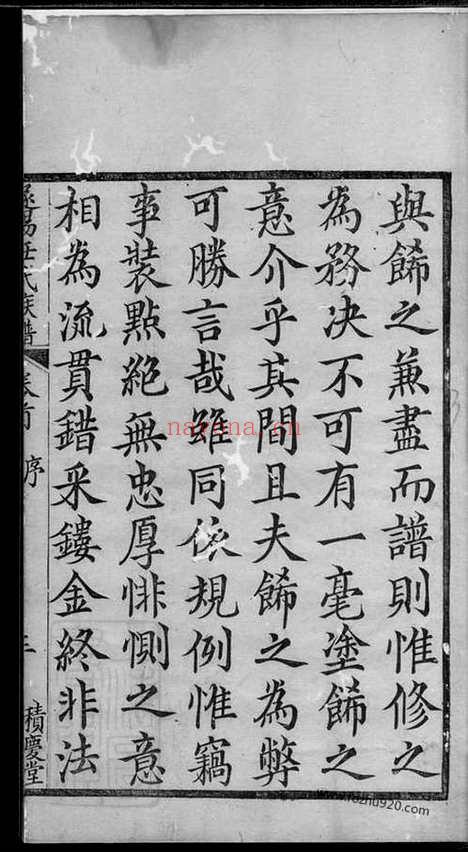 與餙之兼盡而譜則惟修之
為務决不可有一毫塗餙之
意介乎其間且夫餙之為弊
可勝言哉雖同依規例惟竊
事裝點絕無忠厚悱惻之意
相為流貫錯采鏤金終非法
任氏族譜
卷首 序
積慶堂